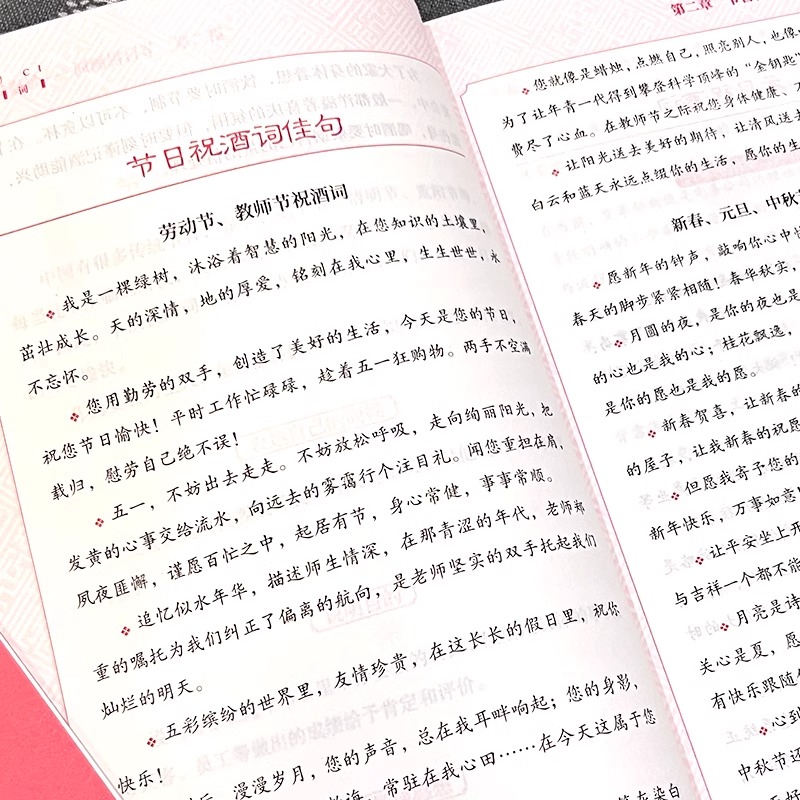 C I
词
节日祝酒词佳句
劳动节、教师节祝酒词
我是一棵绿树，沐浴着智慧的阳光，在您知识的土壤里，
茁壮成长。天的深情，地的厚爱，铭刻在我心里，生生世世，永
不忘怀。
您用勤劳的双手，创造了美好的生活，今天是您的节日，
祝您节日愉快！平时工作忙碌碌，趁着五一狂购物。两手不空满
载归，慰劳自己绝不误！
五一，不妨出去走走。不妨放松呼吸，走向绚丽阳光，把
发黄的心事交给流水，向远去的雾霭行个注目礼。闻您重担在肩，
夙夜匪懈，谨愿百忙之中，起居有节，身心常健，事事常顺。
追忆似水年华，描述师生情深，在那青涩的年代，老师郑
重的嘱托为我们纠正了偏离的航向，是老师坚实的双手托起我们
灿烂的明天。
五彩缤纷的世界里，友情珍贵，在这长长的假日里，祝你
快乐！
漫漫岁月，您的声音，总在我耳畔响起；您的身影，
常驻在我心田……在今天这属于您
染白
第二章
您就像是蜡烛，点燃自己，照亮别人，也像
为了让年青一代得到攀登科学顶峰的“金钥匙”
费尽了心血。在教师节之际祝您身体健康、
让阳光送去美好的期待，让清风送去
白云和蓝天永远点缀你的生活，愿你的生
新春、元旦、中秋
愿新年的钟声，敲响你心中快
春天的脚步紧紧相随！春华秋实，
月圆的夜，是你的夜也是
的心也是我的心；桂花飘逸，
是你的愿也是我的愿。
新春贺喜，让新春的
的屋子，让我新春的祝愿
但愿我寄予您的
新年快乐，万事如意
让平安坐上开
与吉祥一个都不能
月亮是诗
关心是夏，愿
有快乐跟随
心到
中秋节还